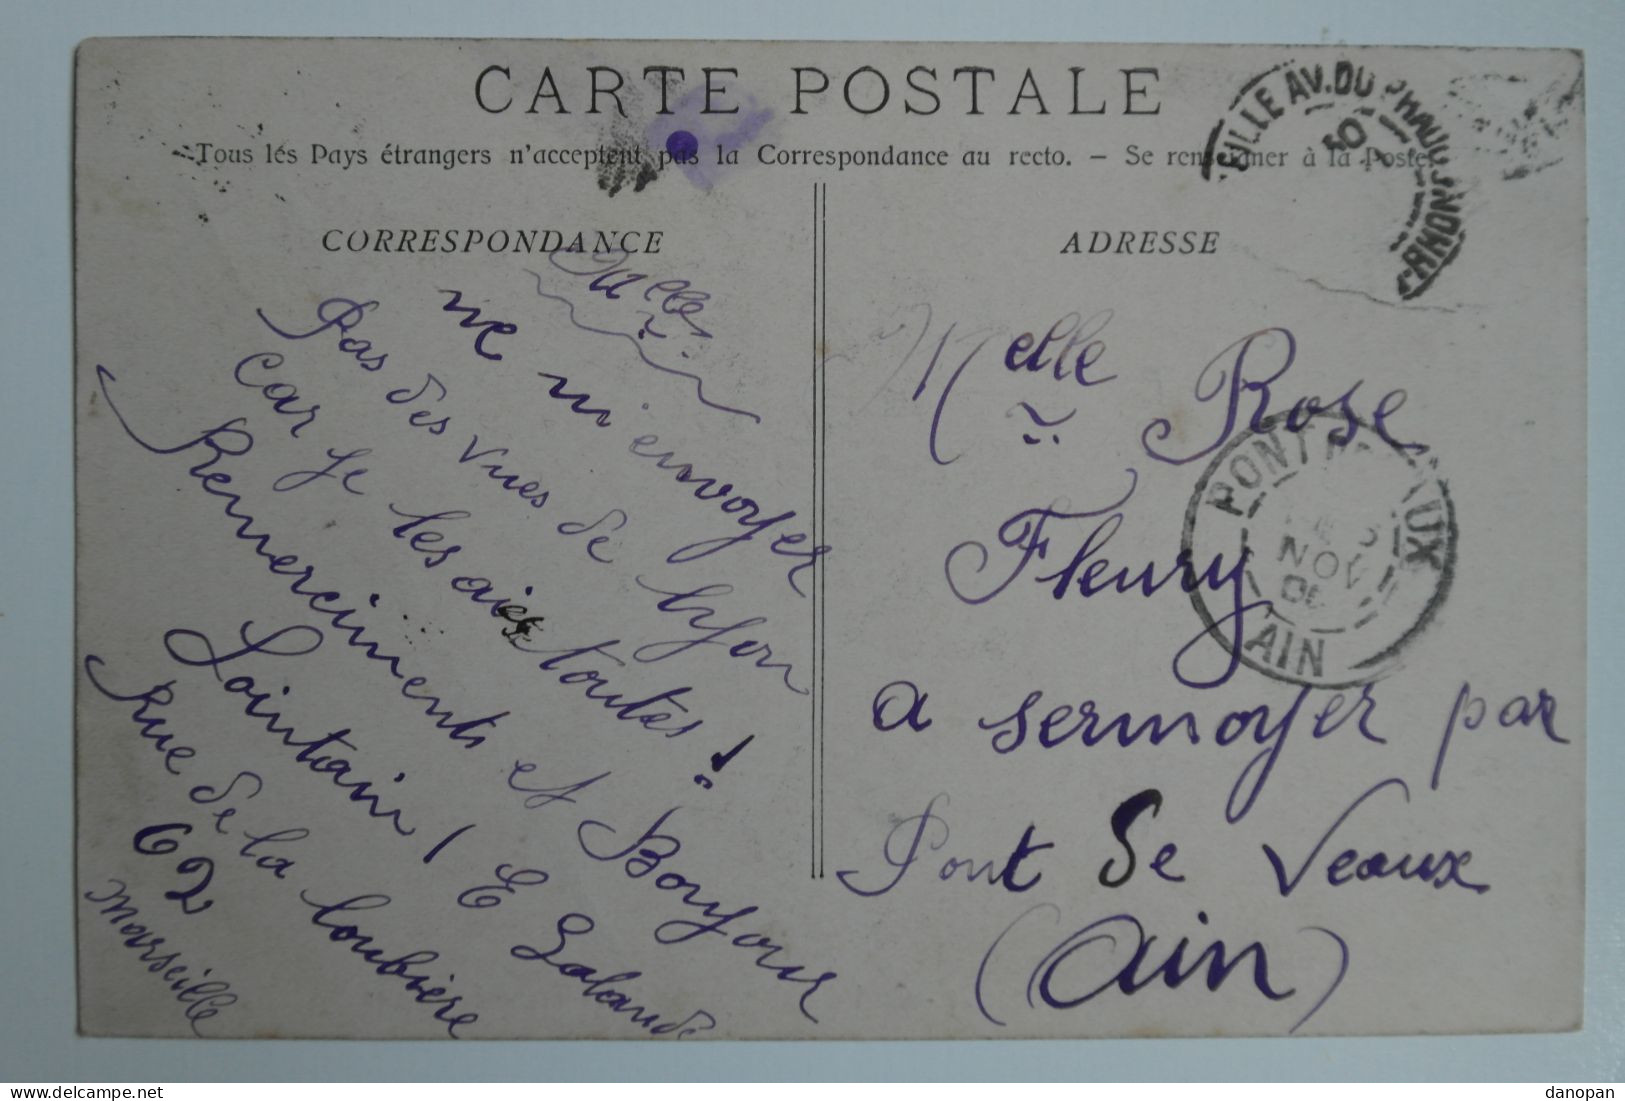 CARTE POSTALE
Tous les Pays étrangers n'acceptent pas la Correspondance au recto. – Se renseigner à la Poste.
CORRESPONDANCE
Melle
ne m'envoyer
Pas des vues de Lyon
Car je les aies toutes !
Remerciments et Bonjour
Lointain ! E Lalande
Rue de la Loubière
62
Marseille
ADRESSE
Melle Rose
Fleury
a sermoyer par
Pont de Veaux
(Ain)
EILLE AV. DU PRADO
RHONE
PONT UX
NOV
AIN
delcampe.net
danopan